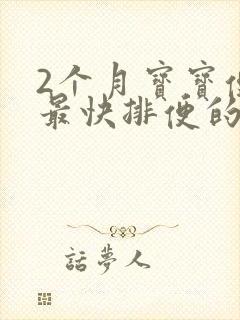 2个月寶寶
最快排便的
話夢人